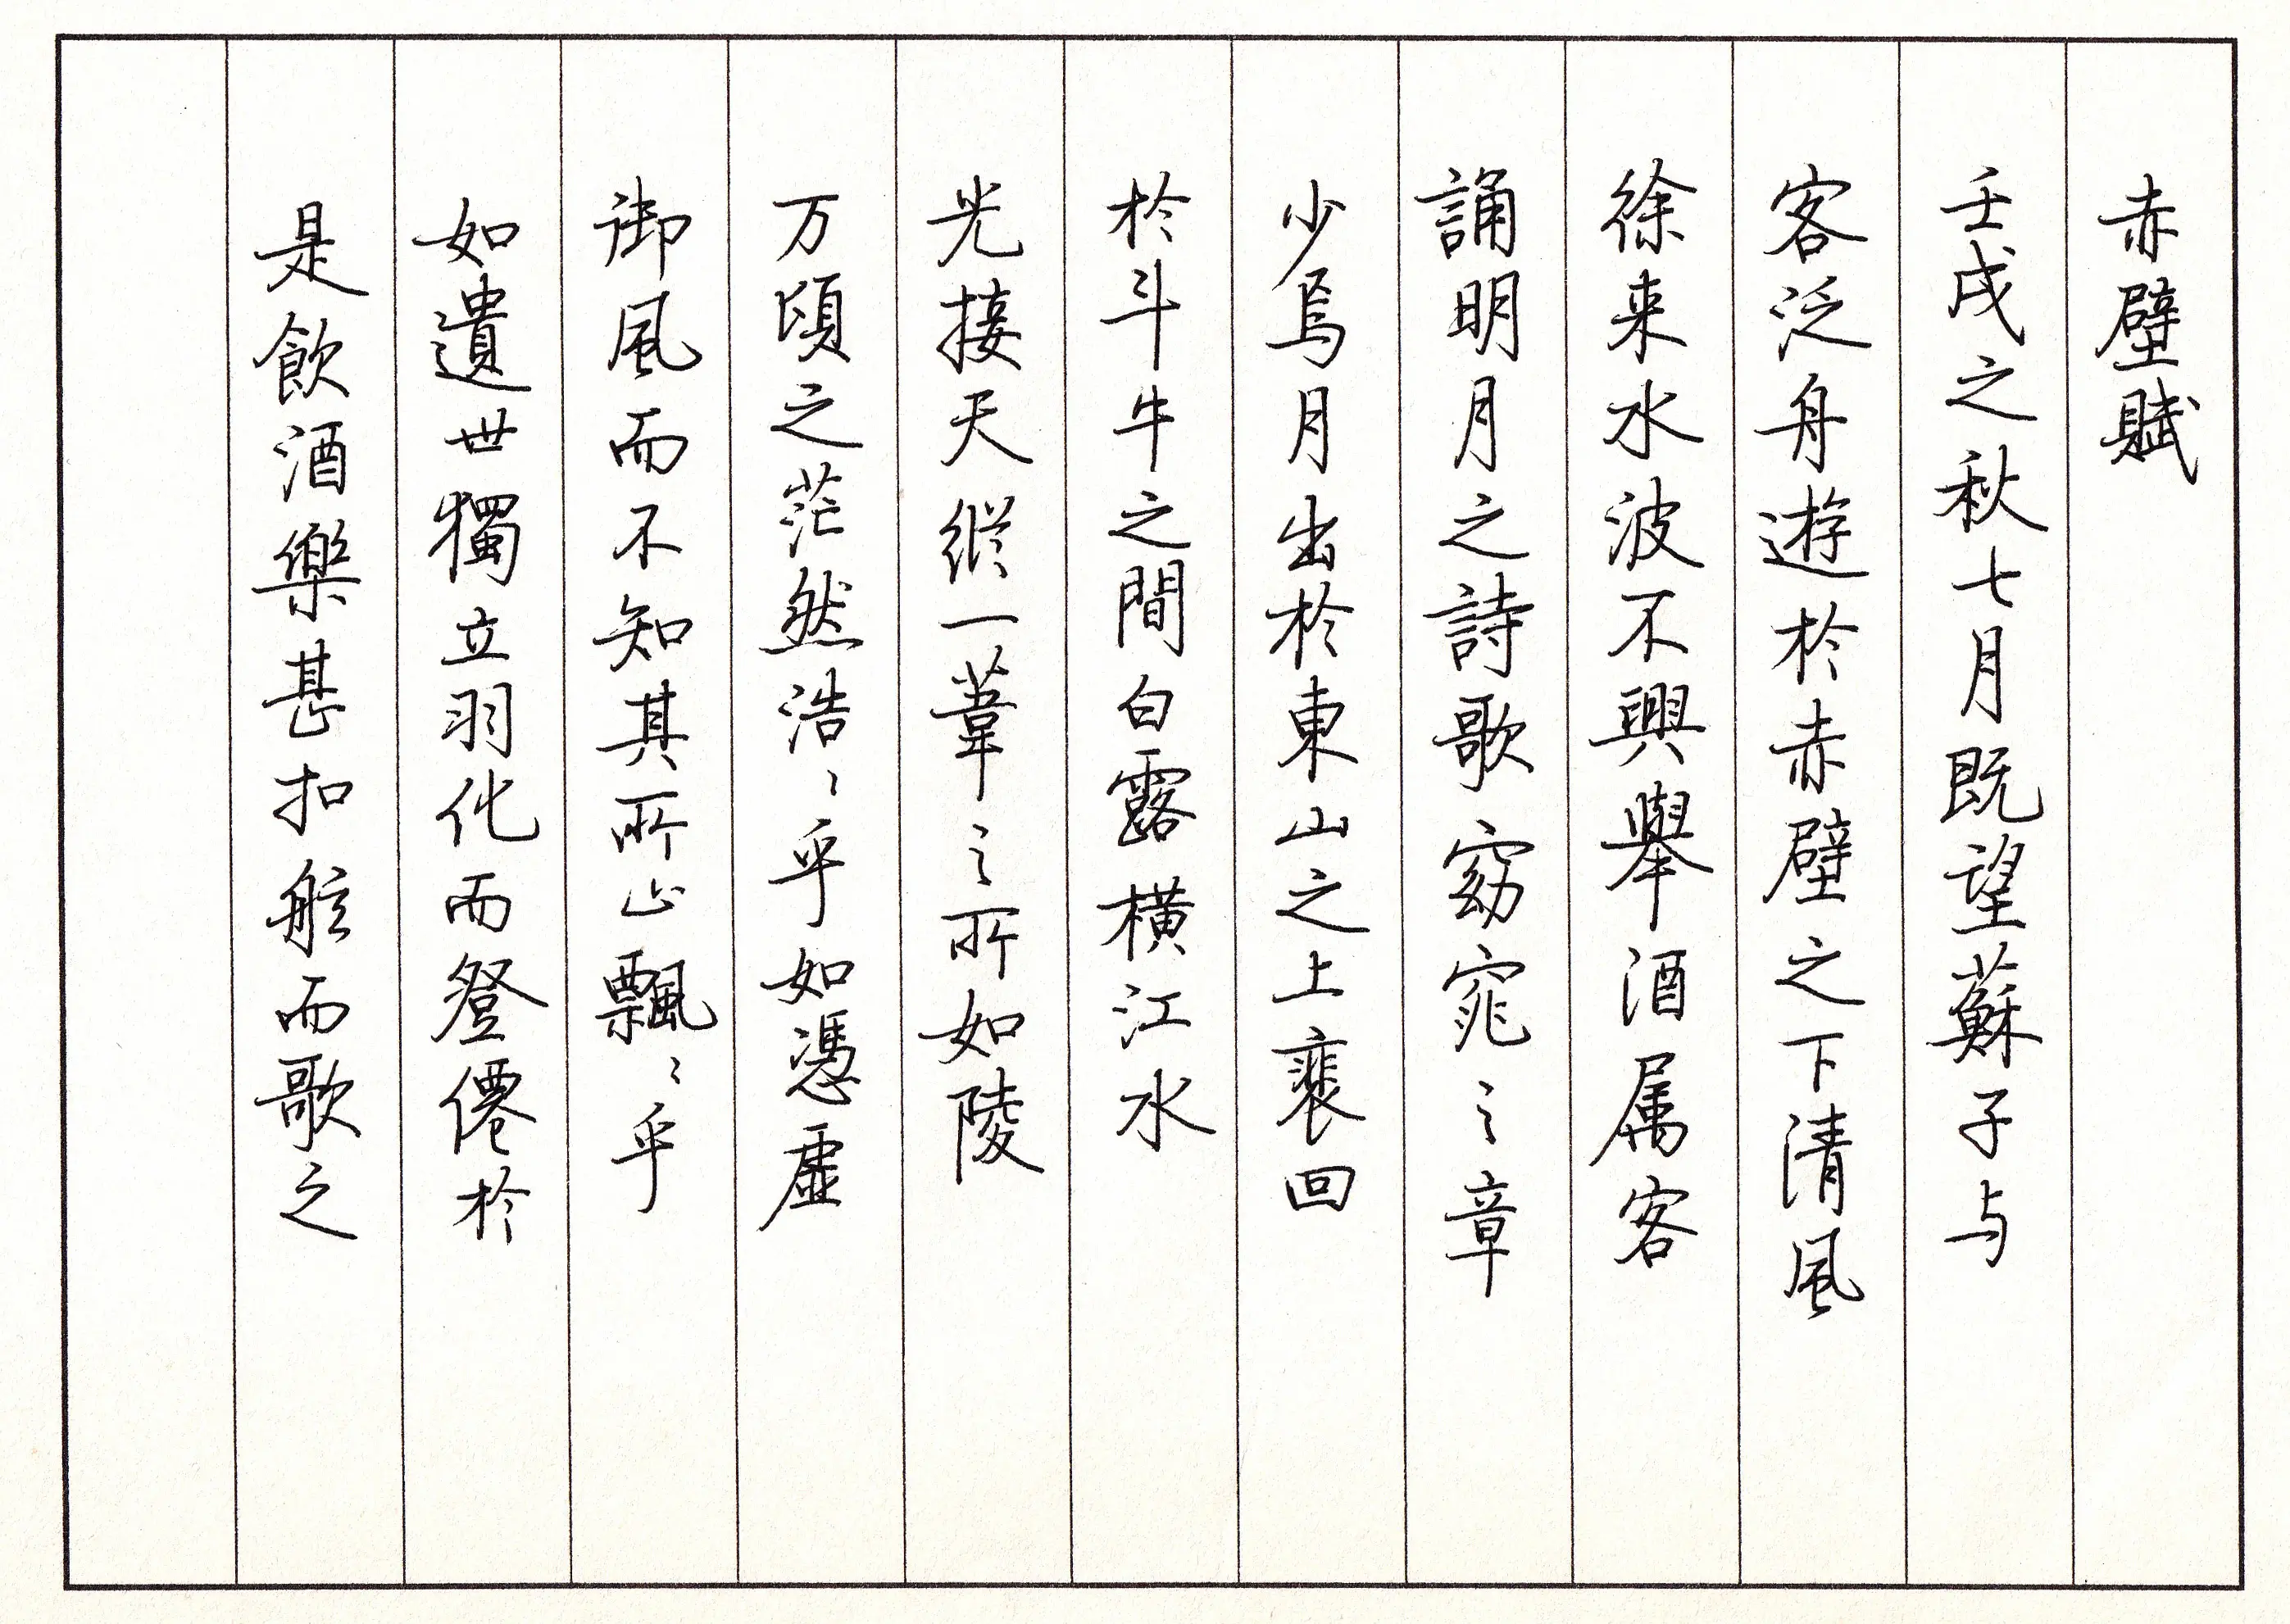 赤壁賦
壬戌之秋七月既望蘇子与
客泛舟遊於赤壁之下清風
徐来水波不興舉酒属客
誦明月之詩歌窈窕之章
少焉月出於東山之上裴回
於斗牛之間白露横江水
光接天縱一葦之所如陵
万頃之茫然浩〻乎如憑虛
御風而不知其所止飄〻乎
如遺世獨立羽化而登僊於
是飲酒樂甚扣舷而歌之